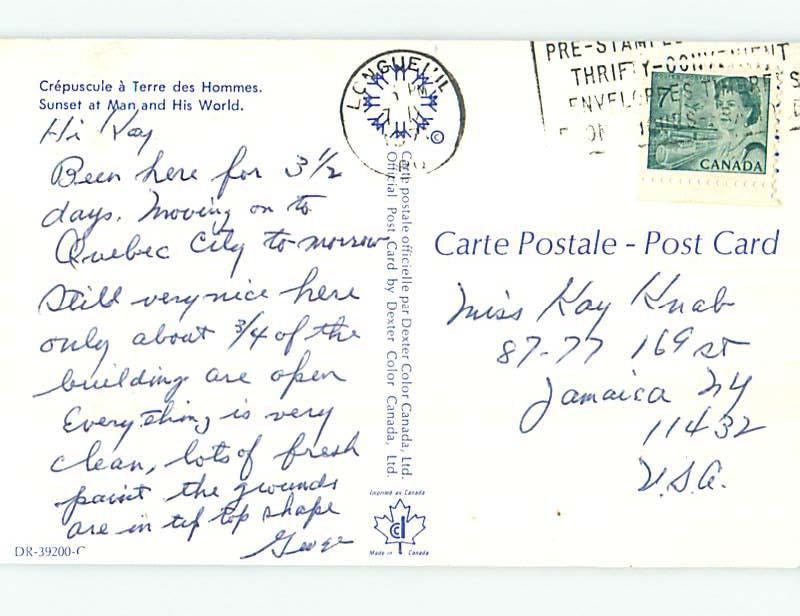 Crépuscule à Terre des Hommes.
Sunset at Man and His World.
Hi Kay
Been here for 3 1/2
days. Moving on to
Quebec City to-morrow
Still very nice here
only about 3/4 of the
building are open
Everything is very
clean, lots of fresh
paint the grounds
are in tip top shape
George
DR-39200-C
LONGUEUIL
©
Carte postale officielle par Dexter Color Canada, Ltd.
Official Post Card by Dexter Color Canada, Ltd.
Imprimé au Canada
Made in Canada
PRE-STAMPED
THRIFTY-CONVENIENT
ENVELOPES
7
CANADA
Carte Postale - Post Card
Miss Kay Knab
87-77 169 st
Jamaica NY
11432
U.S.A.